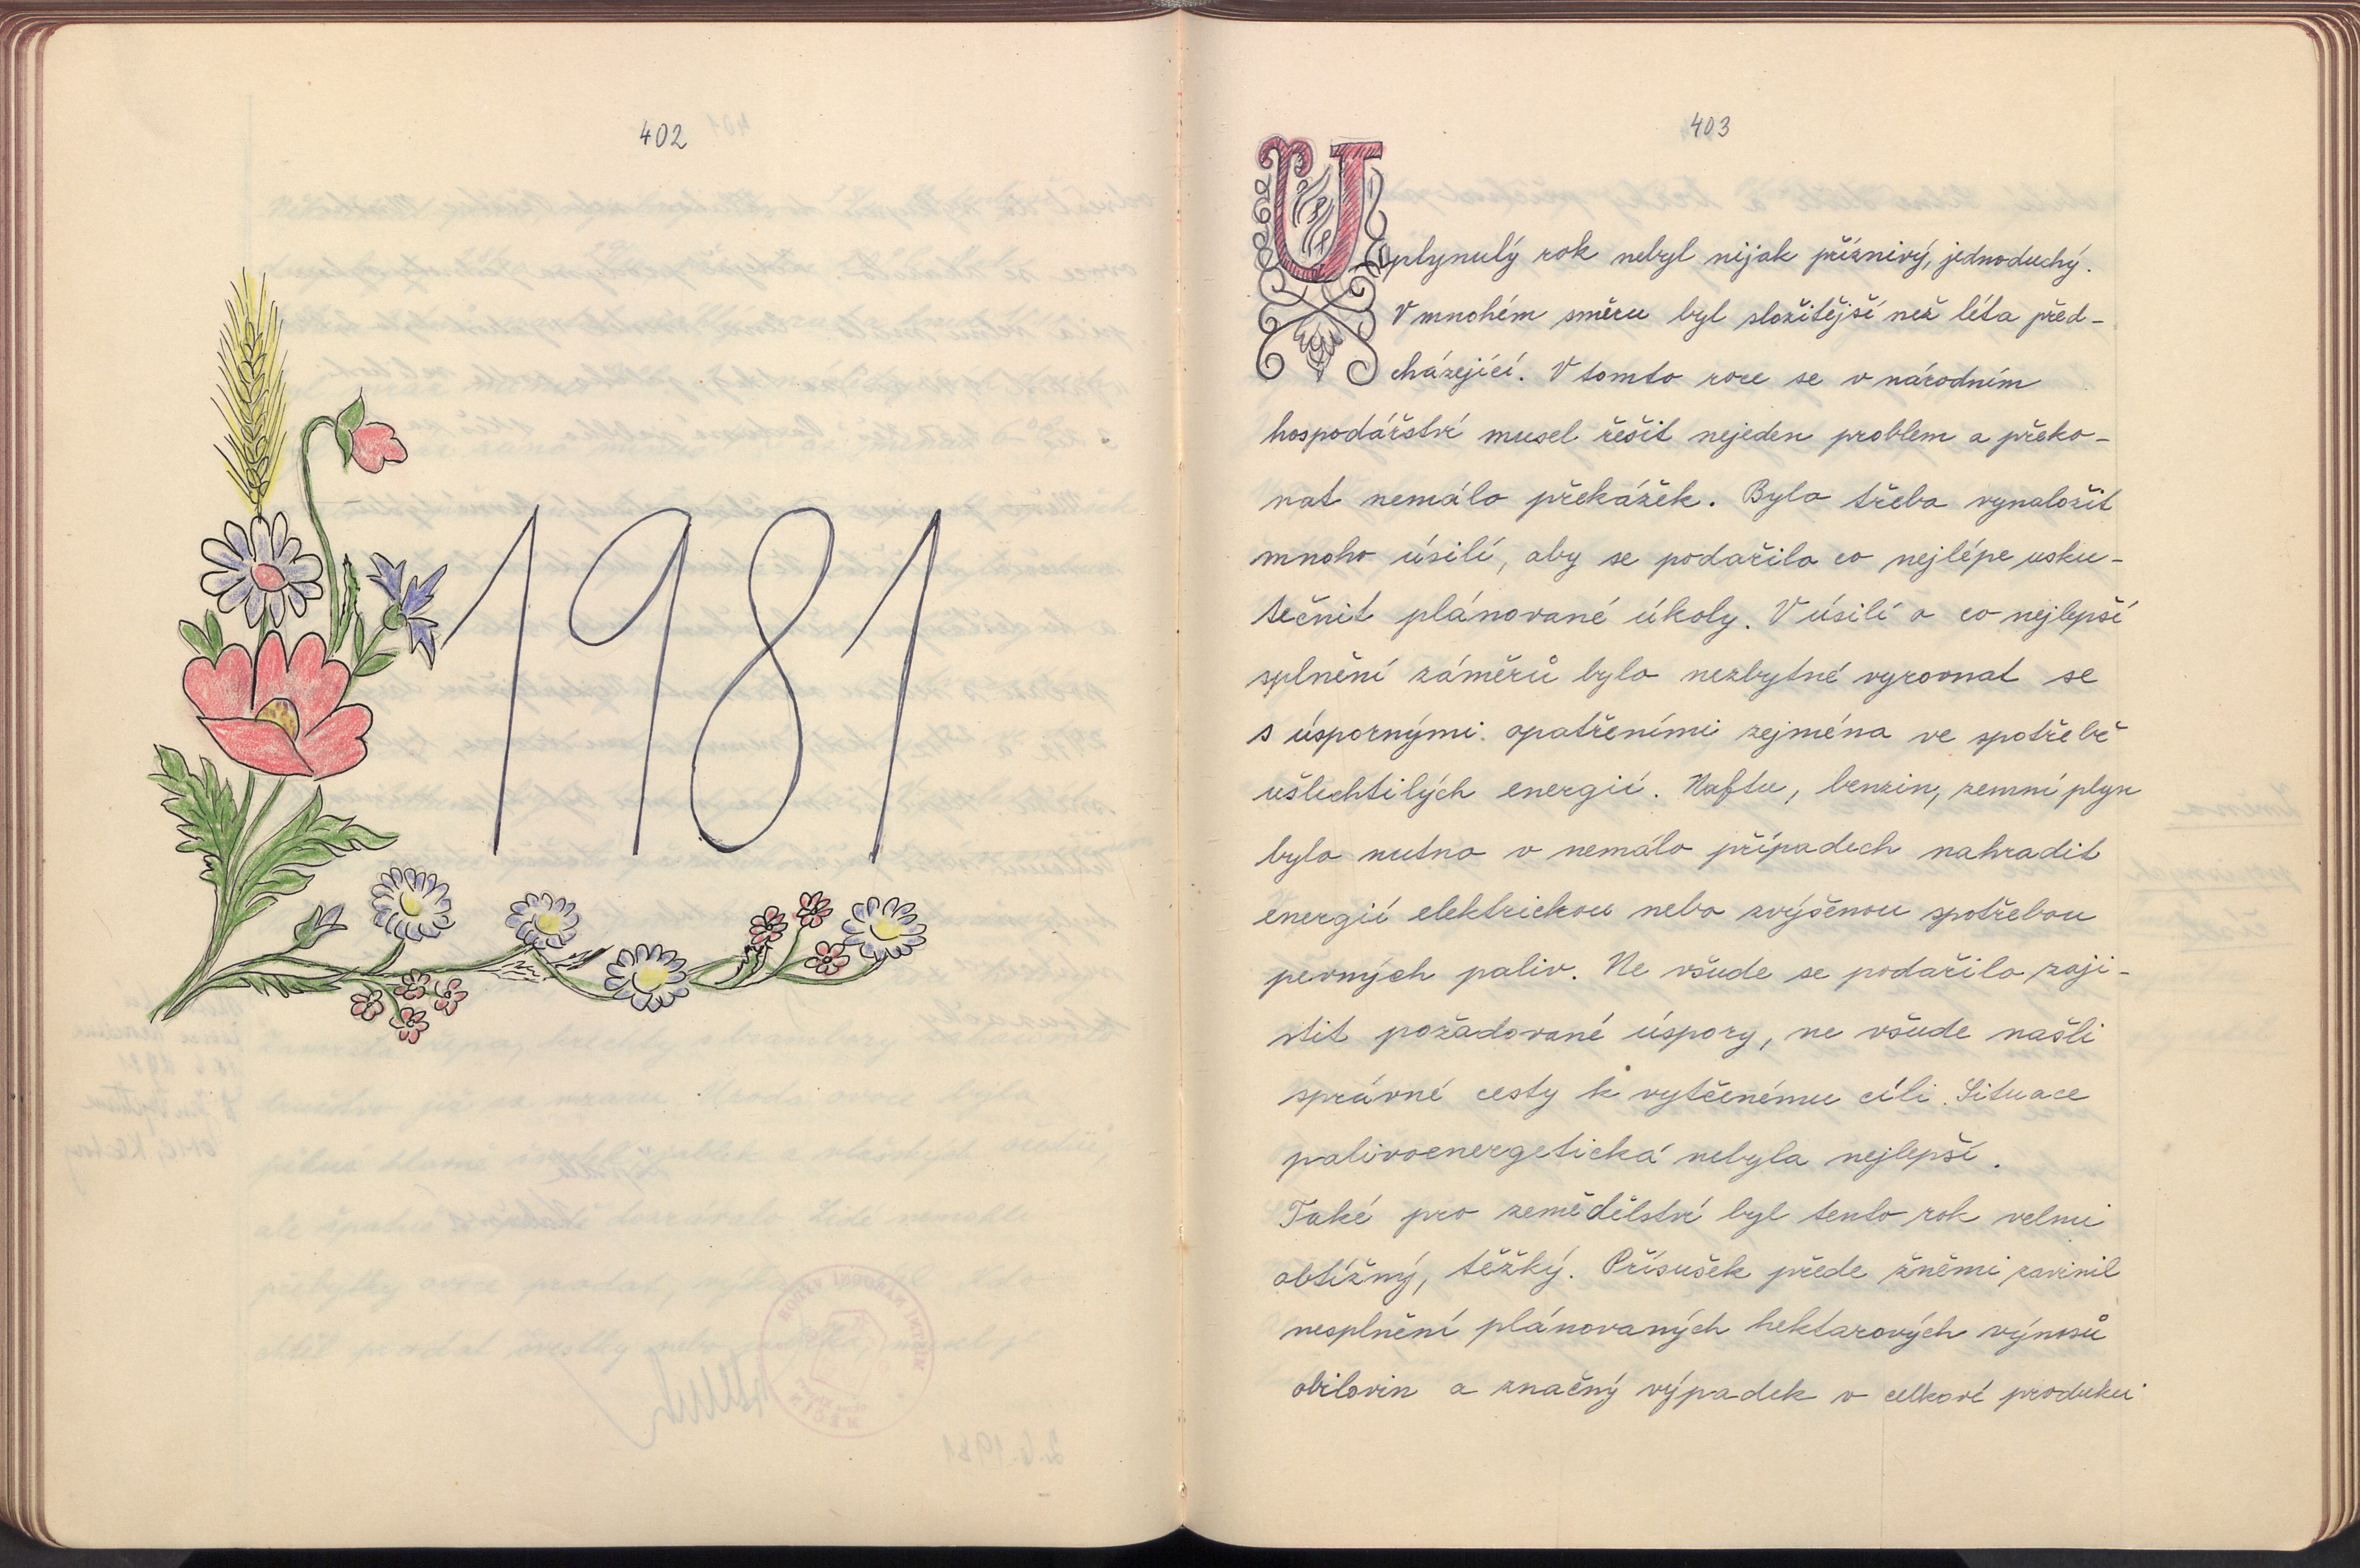 402
1981
403
Uplynulý rok nebyl nijak příznivý, jednoduchý.
V mnohém směru byl složitější než léta před-
cházející. V tomto roce se v národním
hospodářství musel řešit nejeden problem a překo-
nat nemálo překážek. Bylo třeba vynaložit
mnoho úsilí, aby se podařilo co nejlépe usku-
tečnit plánované úkoly. V úsilí o co nejlepší
splnění záměrů bylo nezbytné vyrovnat se
s úspornými opatřeními zejména ve spotřebě
ušlechtilých energií. Naftu, benzin, zemní plyn
bylo nutno v nemálo případech nahradit
energií elektrickou nebo zvýšenou spotřebou
pevných paliv. Ne všude se podařilo zaji-
stit požadované úspory, ne všude našli
správné cesty k vytčenému cíli. Situace
palivoenergetická nebyla nejlepší.
Také pro zemědělství byl tento rok velmi
obtížný, těžký. Přísušek přede žněmi zavinil
nesplnění plánovaných hektarových výnosů
obilovin a značný výpadek v celkové produkci